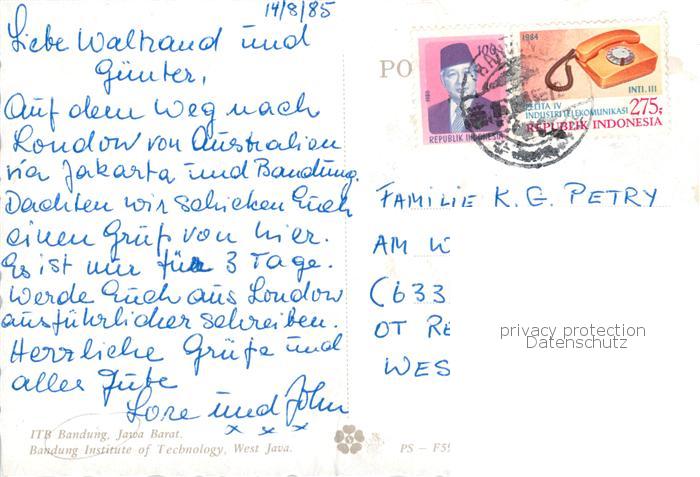 14/8/85
Liebe Waltraud und
Günter,
Auf dem Weg nach
London von Australien
via Jakarta und Bandung.
Dachten wir schicken Euch
einen Gruß von hier.
Es ist nur für 3 Tage.
Werde Euch aus London
ausführlicher schreiben.
Herzliche Grüße und
alles Gute
Lore und John
x x x
ITB Bandung, Jawa Barat.
Bandung Institute of Technology, West Java.
PS – F5
PO
100
1980
REPUBLIK INDONESIA
1984
INTI. III
PELITA IV
INDUSTRI TELEKOMUNIKASI 275;
REPUBLIK INDONESIA
FAMILIE K. G. PETRY
AM W
(633
OT RE
WES
privacy protection
Datenschutz